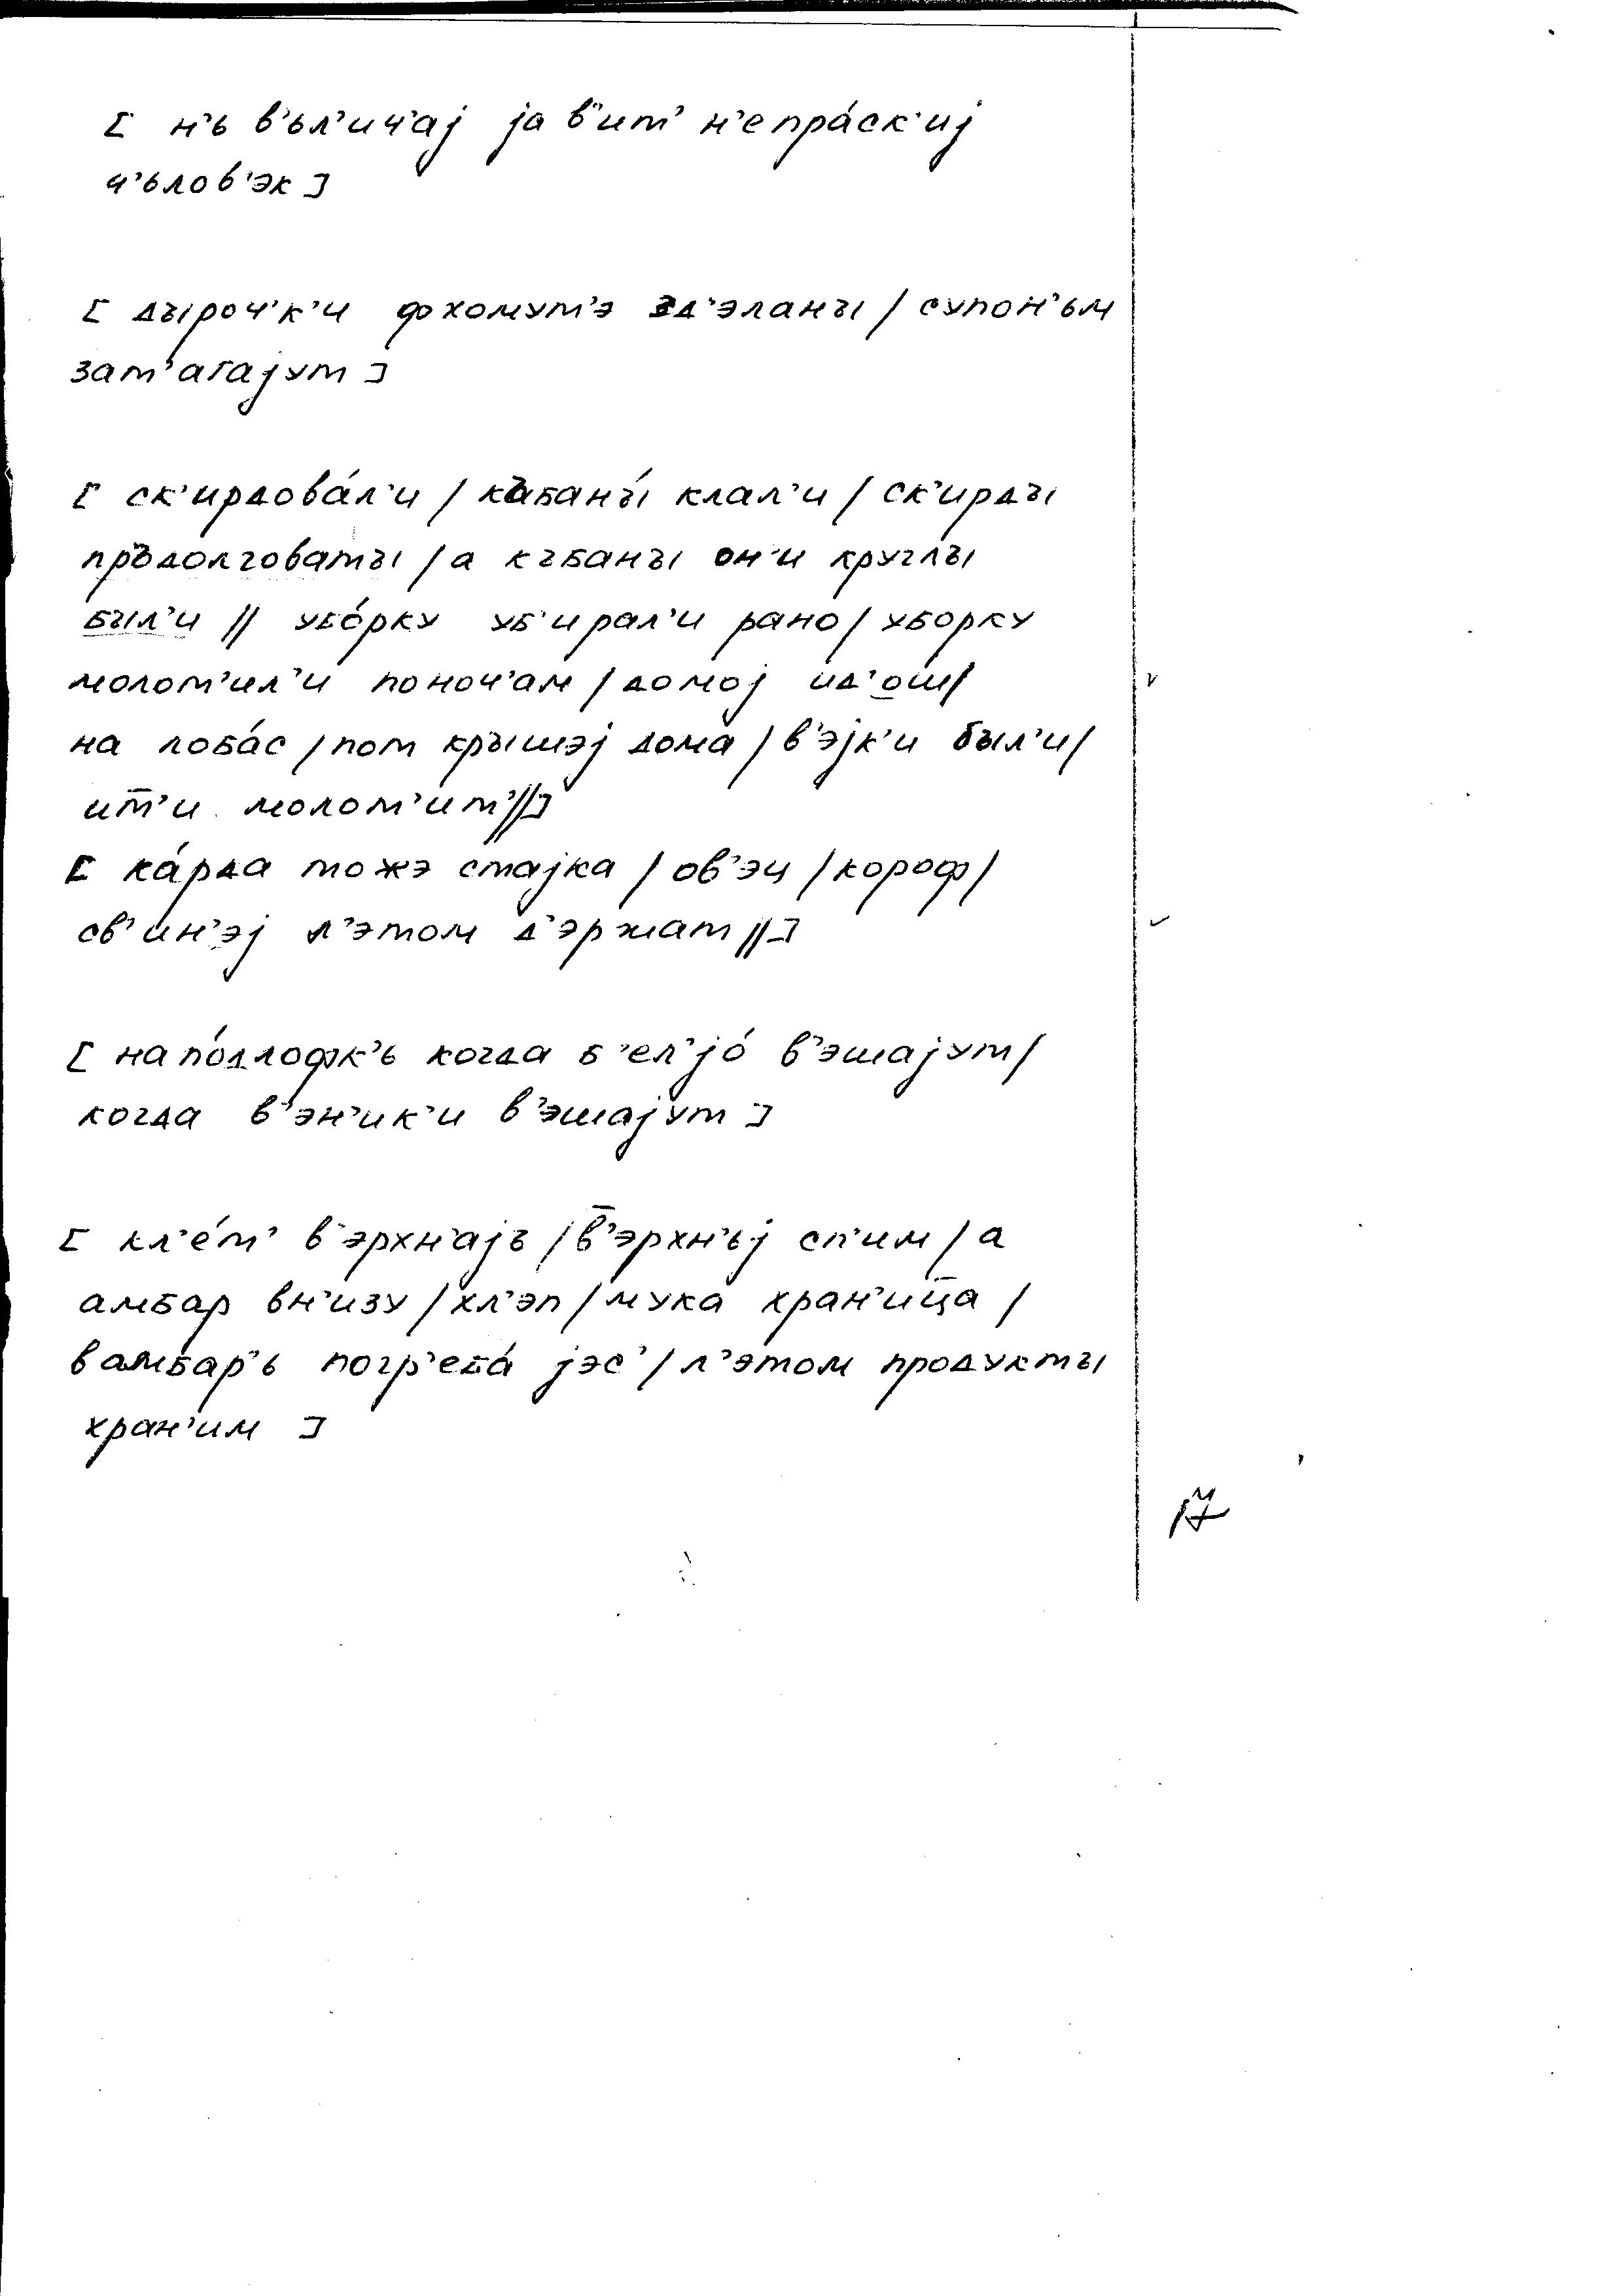 [ н'ь в'ьл'ич'ај ја в'ит' н'епра́ск'иј
ч'ьлов'эк ]
[ дъıроч'к'и фхомут'э зд'эланъı / супон'ьм
зат'агајут ]
[ ск'ирдова́л'и / къбанъı́ клал'и / ск'ирдъı
пръдолговатъı / а къбанъı он'и круглъı
бъıл'и // убо́рку уб'ирал'и рано / уборку
молот'ил'и поноч'ам / домој ид'ош /
на лоба́с / пот кръıшэј дома / в'эјк'и бъıл'и /
ит̄'и молот'ит' // ]
[ ка́рда тожэ стајка / ов'эц / короф /
св'ин'эј л'этом д'эржат // ]
[ напо́длофк'ь когда б'ел'јо́ в'эшајут /
когда в'эн'ик'и в'эшајут ]
[ кл'е́т' в'эрхн'ајъ / в̄'эрхн'ьј сп'им / а
амбар вн'изу / хл'эп / мука хран'иц̄а /
вамбар'ь погр'еба́ јэс' / л'этом продуктъı
хран'им ]
17